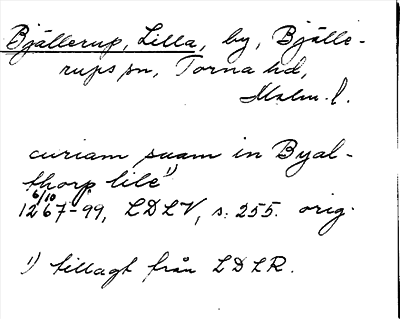 Bjällerup, Lilla, by, Bjälle-
rups sn, Torna hd,
Malm. l.
curiam suam in Byal-
thorp lile¹⁾
6/10
1267-99, LDLV, s. 255. orig.
¹⁾ tillagt från LDLR.